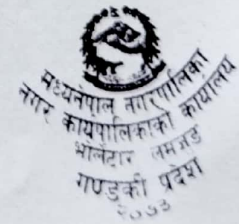 मध्यनेपाल नगरपालिका
नगर कार्यपालिकाको कार्यालय
भोर्लेटार लमजुङ
गण्डकी प्रदेश
२०७३